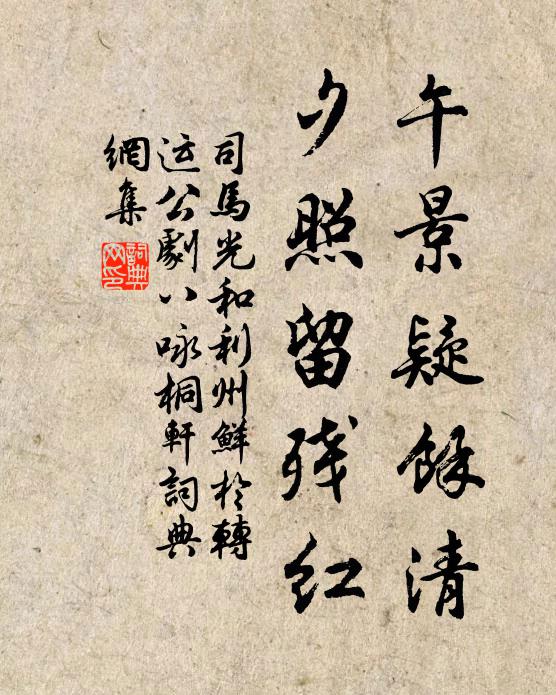 午景疑餘清
夕照留残红
司馬光和利州鮮於轉
运公劇八咏桐軒詞典
網集
詞典网印